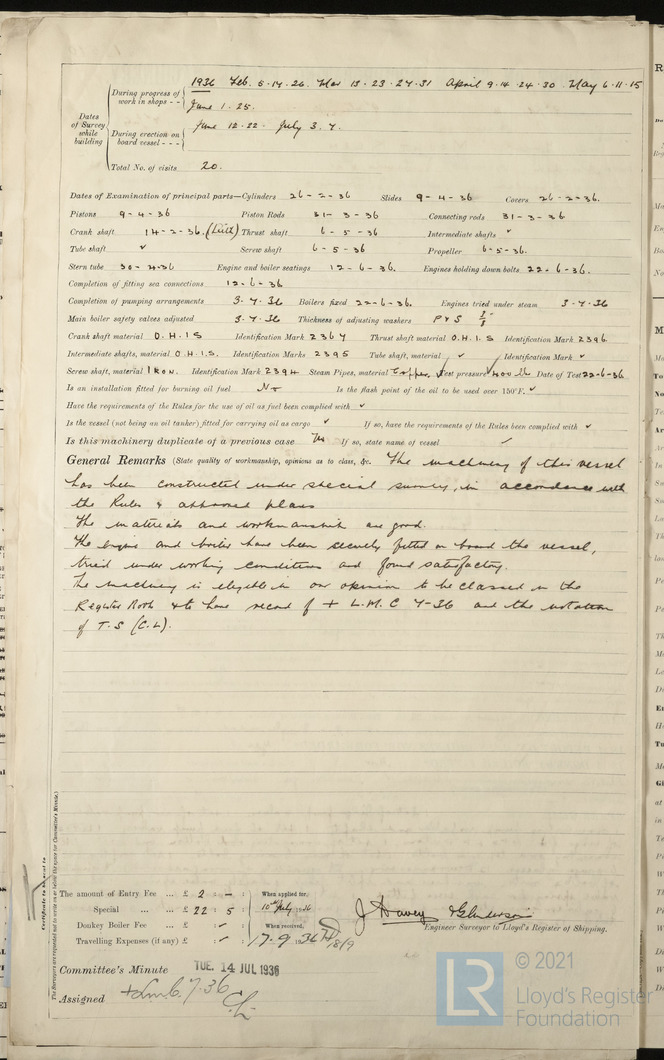 1936 Feb. 6.14.26. Mar 13.23.27.31 April 9.14.24.30 May 6.11.15
During progress of work in shops - -
June 1.25.
Dates of Survey while building
During erection on board vessel - - -
June 12.22. July 3.7.
Total No. of visits 20.
Dates of Examination of principal parts—Cylinders 26-2-36 Slides 9-4-36 Covers 26-2-36.
Pistons 9-4-36 Piston Rods 31-3-36 Connecting rods 31-3-36
Crank shaft 14-2-36. Thrust shaft 6-5-36 Intermediate shafts ✓
Tube shaft ✓ Screw shaft 6-5-36 Propeller 6-5-36.
Stern tube 30-4-36 Engine and boiler seatings 12-6-36. Engines holding down bolts 22-6-36.
Completion of fitting sea connections 12-6-36
Completion of pumping arrangements 3.7.36 Boilers fixed 22-6-36. Engines tried under steam 3-7-36
Main boiler safety valves adjusted 3.7.36 Thickness of adjusting washers P & S 3/8
Crank shaft material O.H.I S Identification Mark 2367 Thrust shaft material O.H.I.S Identification Mark 2396
Intermediate shafts, material O.H.I.S. Identification Marks 2395 Tube shaft, material ✓ Identification Mark ✓
Screw shaft, material IRON. Identification Mark 2394 Steam Pipes, material Copper. Test pressure 400 lb Date of Test 22-6-36
Is an installation fitted for burning oil fuel No Is the flash point of the oil to be used over 150°F. ✓
Have the requirements of the Rules for the use of oil as fuel been complied with ✓
Is the vessel (not being an oil tanker) fitted for carrying oil as cargo ✓ If so, have the requirements of the Rules been complied with ✓
Is this machinery duplicate of a previous case No If so, state name of vessel ✓
General Remarks (State quality of workmanship, opinions as to class, &c. The machinery of this vessel
has been constructed under special survey, in accordance with
the Rules & approved plans
The materials and workmanship are good.
The engine and boiler have been securely fitted on board the vessel,
tried under working conditions and found satisfactory.
The machinery is eligible in our opinion to be classed in the
Register Book & to have record of + L.M.C 7-36 and the notation
of T.S (C.L).
Certificate to be sent to
The Surveyors are requested not to write on or below the space for Committee's Minute.
The amount of Entry Fee ... £ 2 : - : When applied for,
Special ... ... £ 22 : 5 : 10th July 1936
Donkey Boiler Fee ... £ ✓ : When received,
Travelling Expenses (if any) £ ✓ : 17.9.1936 18/9
J Havey
Engineer Surveyor to Lloyd's Register of Shipping.
Committee's Minute TUE. 14 JUL 1936
Assigned + LMC 7.36
C.L.
© 2021
LR Lloyd's Register
Foundation